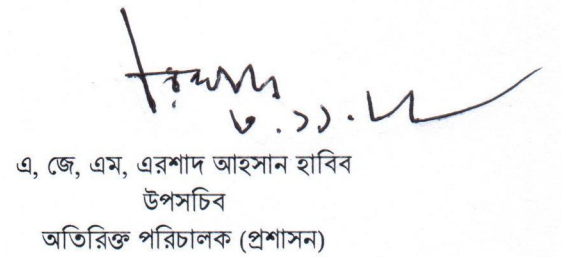 ৩.১১.
এ, জে, এম, এরশাদ আহসান হাবিব
উপসচিব
অতিরিক্ত পরিচালক (প্রশাসন)